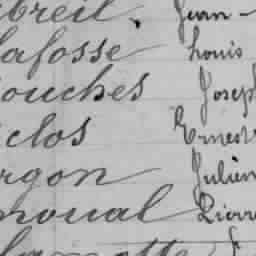 breil. Jean -
lafosse Louis
ouches Joseph
clos Ernest
rgon Julien
noual Pierre